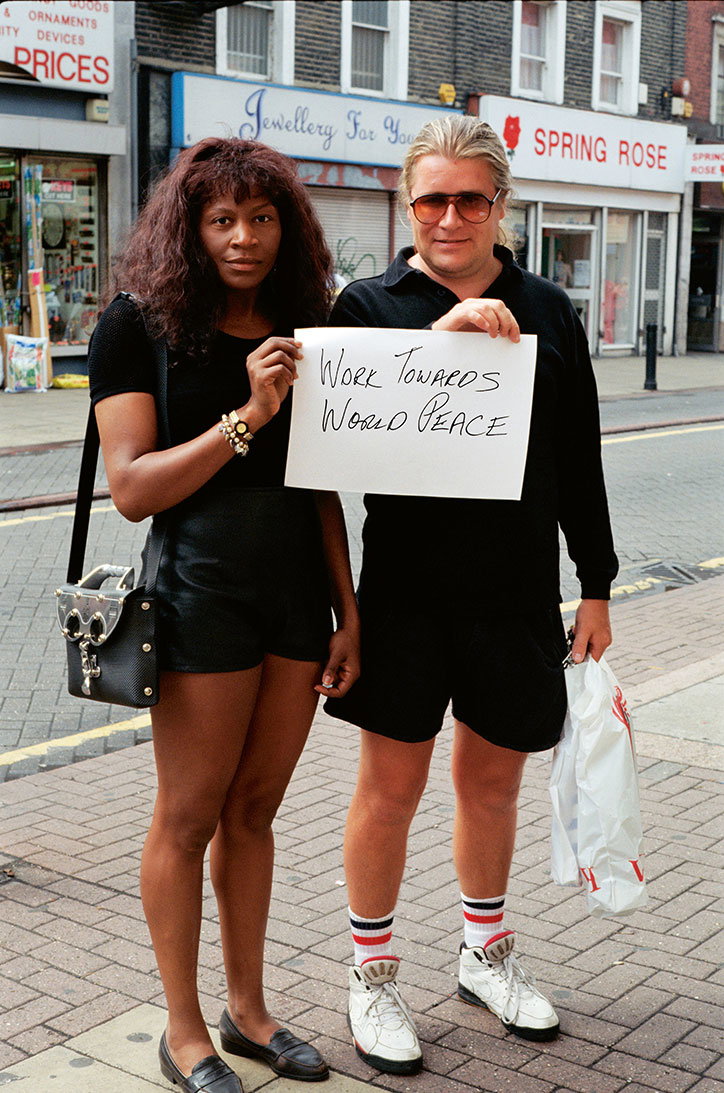 GOODS
& ORNAMENTS
DEVICES
PRICES
Jewellery For You
SPRING ROSE
SPRING
ROSE
Work Towards
World Peace